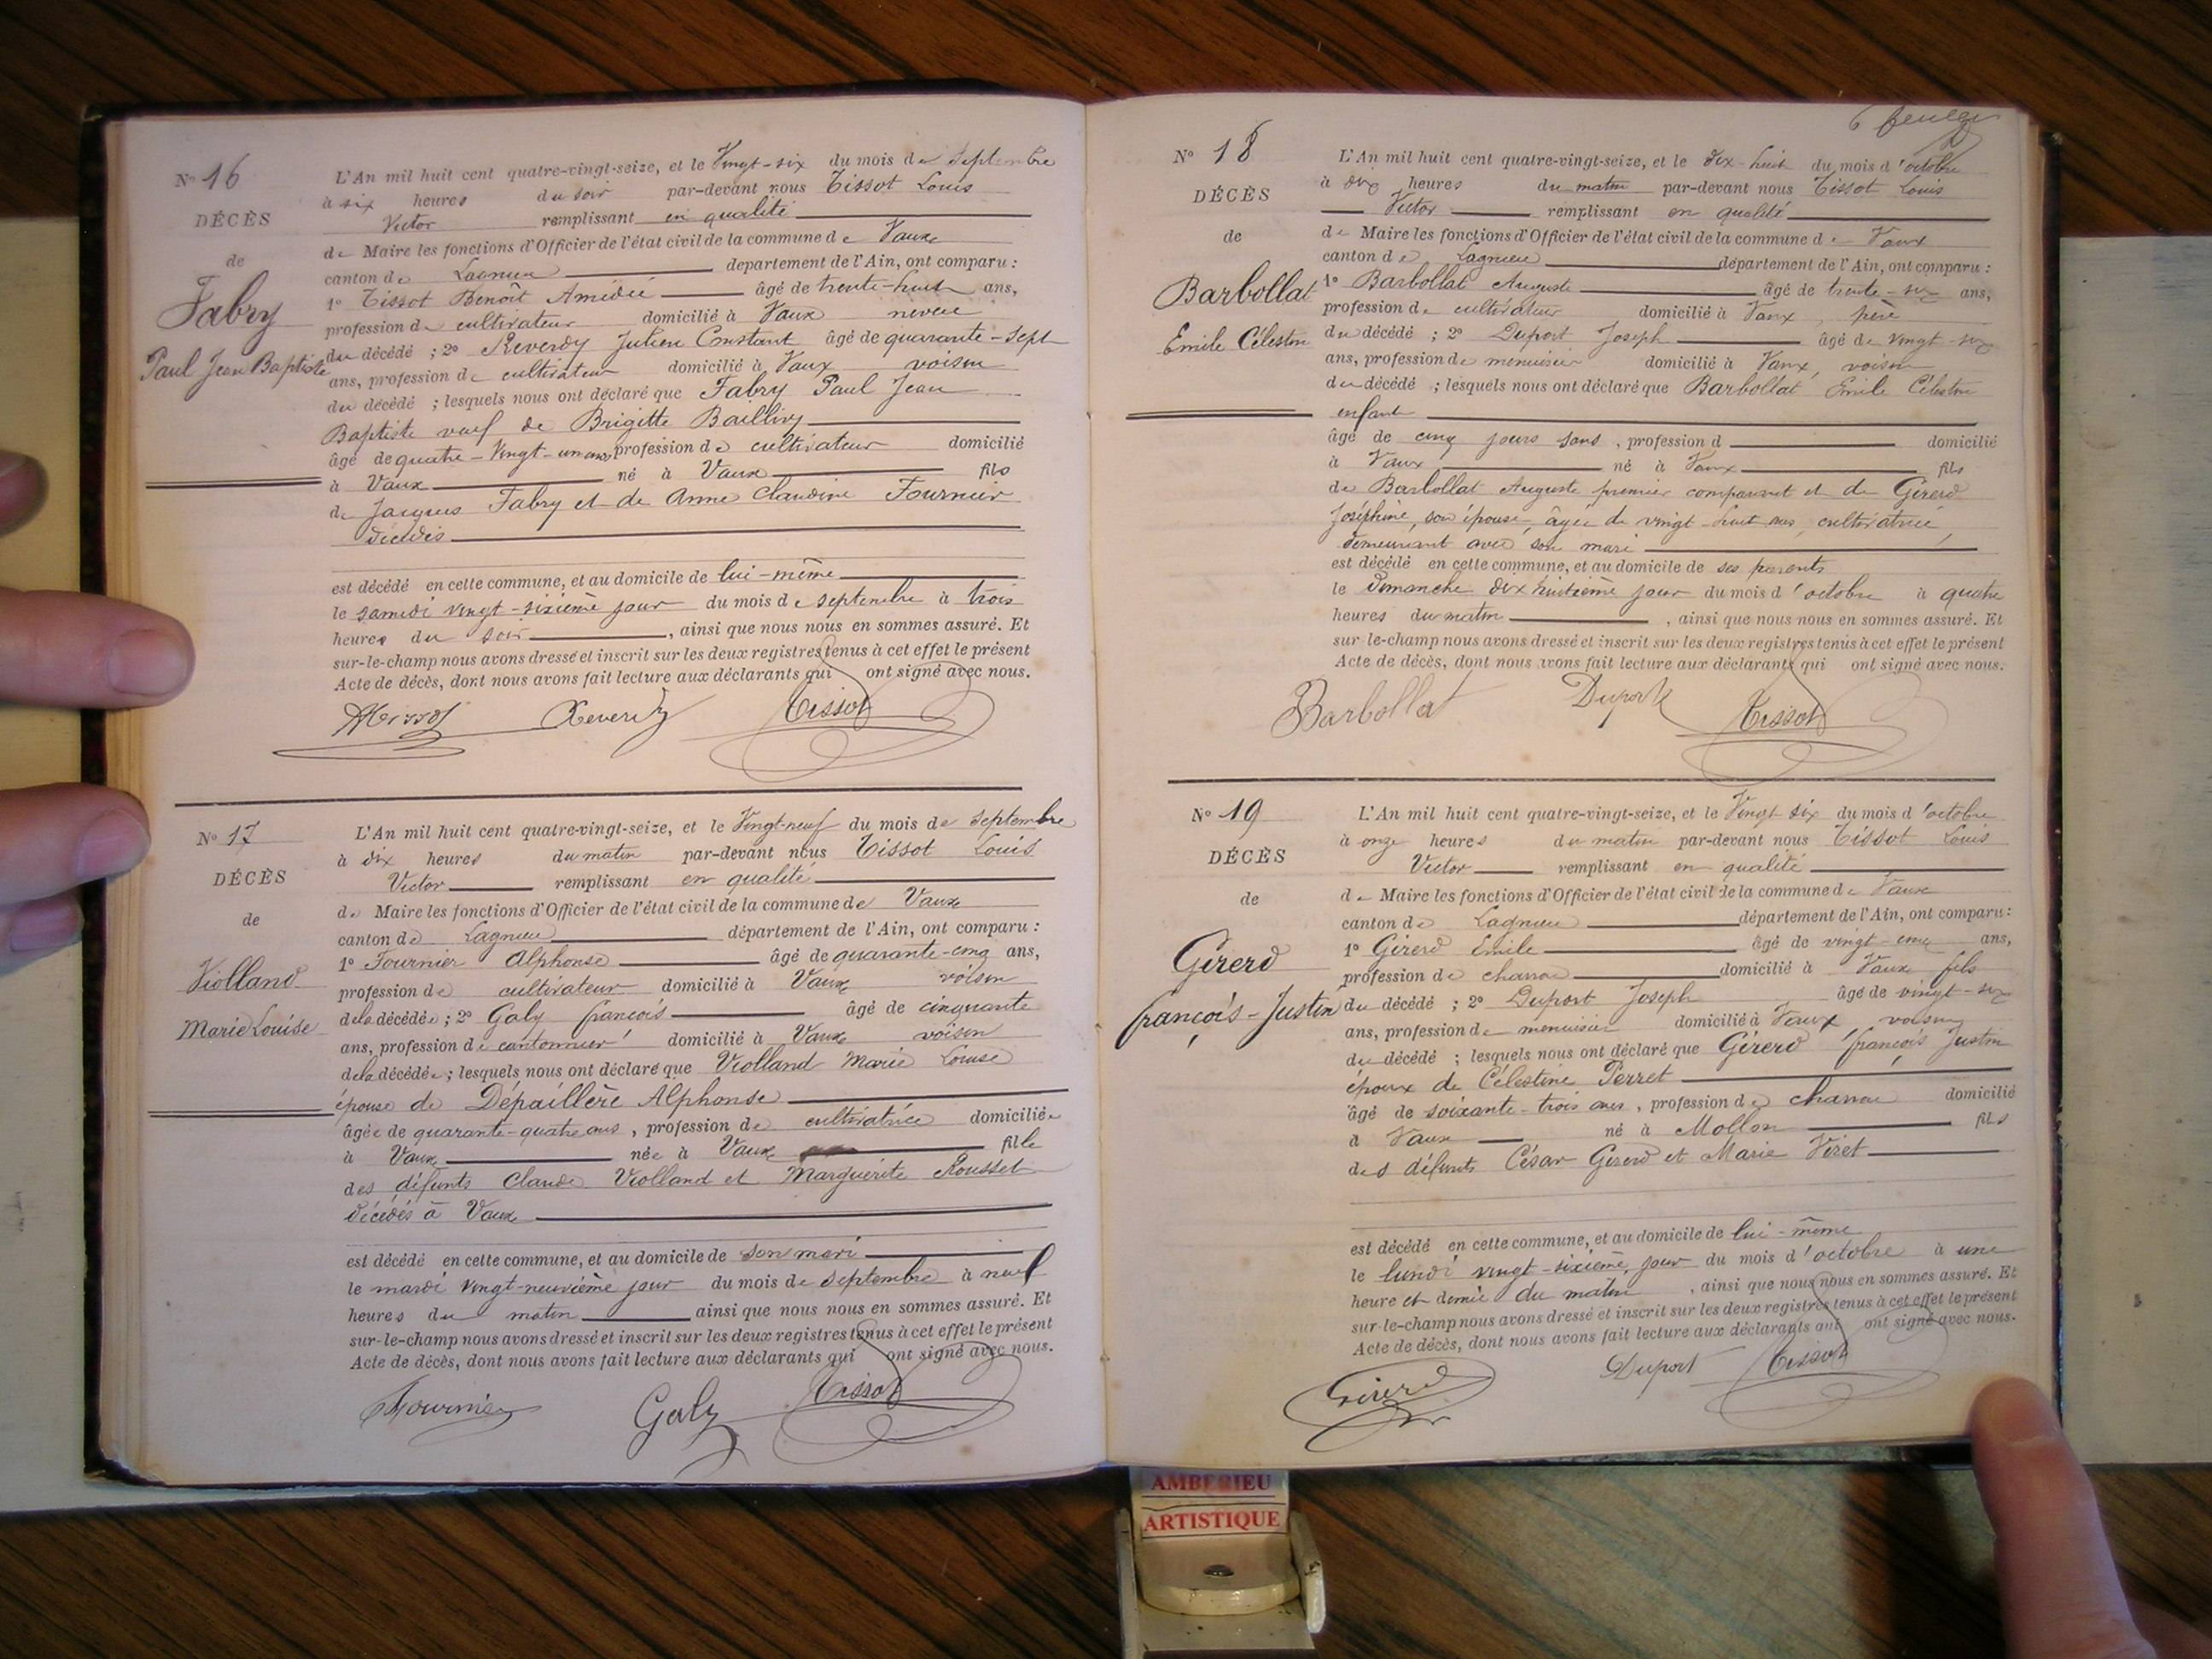 Nº 16
DÉCÈS
de
Fabry
Paul Jean Baptiste
L'An mil huit cent quatre-vingt-seize, et le Vingt-six du mois de Septembre
à six heures du soir par-devant nous Tissot Louis
Victor remplissant en qualité
de Maire les fonctions d'Officier de l'état civil de la commune de Vaux
canton de Lagnieu département de l'Ain, ont comparu :
1º Tissot Benoît Amédée âgé de trente-huit ans,
profession de cultivateur domicilié à Vaux neveu
du décédé ; 2º Reverdy Julien Constant âgé de quarante-sept
ans, profession de cultivateur domicilié à Vaux voisin
du décédé ; lesquels nous ont déclaré que Fabry Paul Jean
Baptiste veuf de Brigitte Baillivy
âgé de quatre-Vingt-un ans profession de cultivateur domicilié
à Vaux né à Vaux fils
de Jacques Fabry et de Anne Claudine Fournier
décédés
est décédé en cette commune, et au domicile de lui-même
le samedi vingt-sixième jour du mois de septembre à trois
heures du soir, ainsi que nous nous en sommes assuré. Et
sur-le-champ nous avons dressé et inscrit sur les deux registres tenus à cet effet le présent
Acte de décès, dont nous avons fait lecture aux déclarants qui ont signé avec nous.
ATissot Reverdy Tissot
Nº 17
DÉCÈS
de
Violland
Marie Louise
L'An mil huit cent quatre-vingt-seize, et le Vingt-neuf du mois de septembre
à dix heures du matin par-devant nous Tissot Louis
Victor remplissant en qualité
de Maire les fonctions d'Officier de l'état civil de la commune de Vaux
canton de Lagnieu département de l'Ain, ont comparu :
1º Fournier Alphonse âgé de quarante-cinq ans,
profession de cultivateur domicilié à Vaux voisin
de la décédée ; 2º Galy françois âgé de cinquante
ans, profession de cantonnier domicilié à Vaux voisin
de la décédée ; lesquels nous ont déclaré que Violland Marie Louise
épouse de Dépaillère Alphonse
âgée de quarante-quatre ans, profession de cultivatrice domiciliée
à Vaux née à Vaux fille
des défunts Claude Violland et Marguerite Rousset
décédés à Vaux
est décédé en cette commune, et au domicile de son mari
le mardi vingt-neuvième jour du mois de septembre à neuf
heures du matin ainsi que nous nous en sommes assuré. Et
sur-le-champ nous avons dressé et inscrit sur les deux registres tenus à cet effet le présent
Acte de décès, dont nous avons fait lecture aux déclarants qui ont signé avec nous.
Fournier Galy Tissot
Nº 18
DÉCÈS
de
Barbollat
Emile Célestin
L'An mil huit cent quatre-vingt-seize, et le dix-huit du mois d'octobre
à dix heures du matin par-devant nous Tissot Louis
Victor remplissant en qualité
de Maire les fonctions d'Officier de l'état civil de la commune de Vaux
canton de Lagnieu département de l'Ain, ont comparu :
1º Barbollat Auguste âgé de trente-six ans,
profession de cultivateur domicilié à Vaux, père
du décédé ; 2º Duport Joseph âgé de vingt-six
ans, profession de menuisier domicilié à Vaux, voisin
du décédé ; lesquels nous ont déclaré que Barbollat Emile Célestin
enfant
âgé de cinq jours sans, profession d domicilié
à Vaux né à Vaux fils
de Barbollat Auguste premier comparant et de Girerd
Joséphine, son épouse, âgée de vingt-huit ans, cultivatrice,
demeurant avec son mari
est décédé en cette commune, et au domicile de ses parents
le Dimanche dix huitième jour du mois d'octobre à quatre
heures du matin, ainsi que nous nous en sommes assuré. Et
sur-le-champ nous avons dressé et inscrit sur les deux registres tenus à cet effet le présent
Acte de décès, dont nous avons fait lecture aux déclarants qui ont signé avec nous.
Barbollat Duport Tissot
Nº 19
DÉCÈS
de
Girerd
françois-Justin
L'An mil huit cent quatre-vingt-seize, et le Vingt six du mois d'octobre
à onze heures du matin par-devant nous Tissot Louis
Victor remplissant en qualité
de Maire les fonctions d'Officier de l'état civil de la commune de Vaux
canton de Lagnieu département de l'Ain, ont comparu :
1º Girerd Emile âgé de vingt-cinq ans,
profession de charron domicilié à Vaux fils
du décédé ; 2º Duport Joseph âgé de vingt-six
ans, profession de menuisier domicilié à Vaux, voisin
du décédé ; lesquels nous ont déclaré que Girerd françois Justin
époux de Célestine Perret
âgé de soixante-trois ans, profession de charron domicilié
à Vaux né à Mollon fils
des défunts César Girerd et Marie Viret
est décédé en cette commune, et au domicile de lui-même
le lundi vingt-sixième jour du mois d'octobre à une
heure et demie du matin, ainsi que nous nous en sommes assuré. Et
sur-le-champ nous avons dressé et inscrit sur les deux registres tenus à cet effet le présent
Acte de décès, dont nous avons fait lecture aux déclarants qui ont signé avec nous.
Girerd Duport Tissot
AMBERIEU
ARTISTIQUE